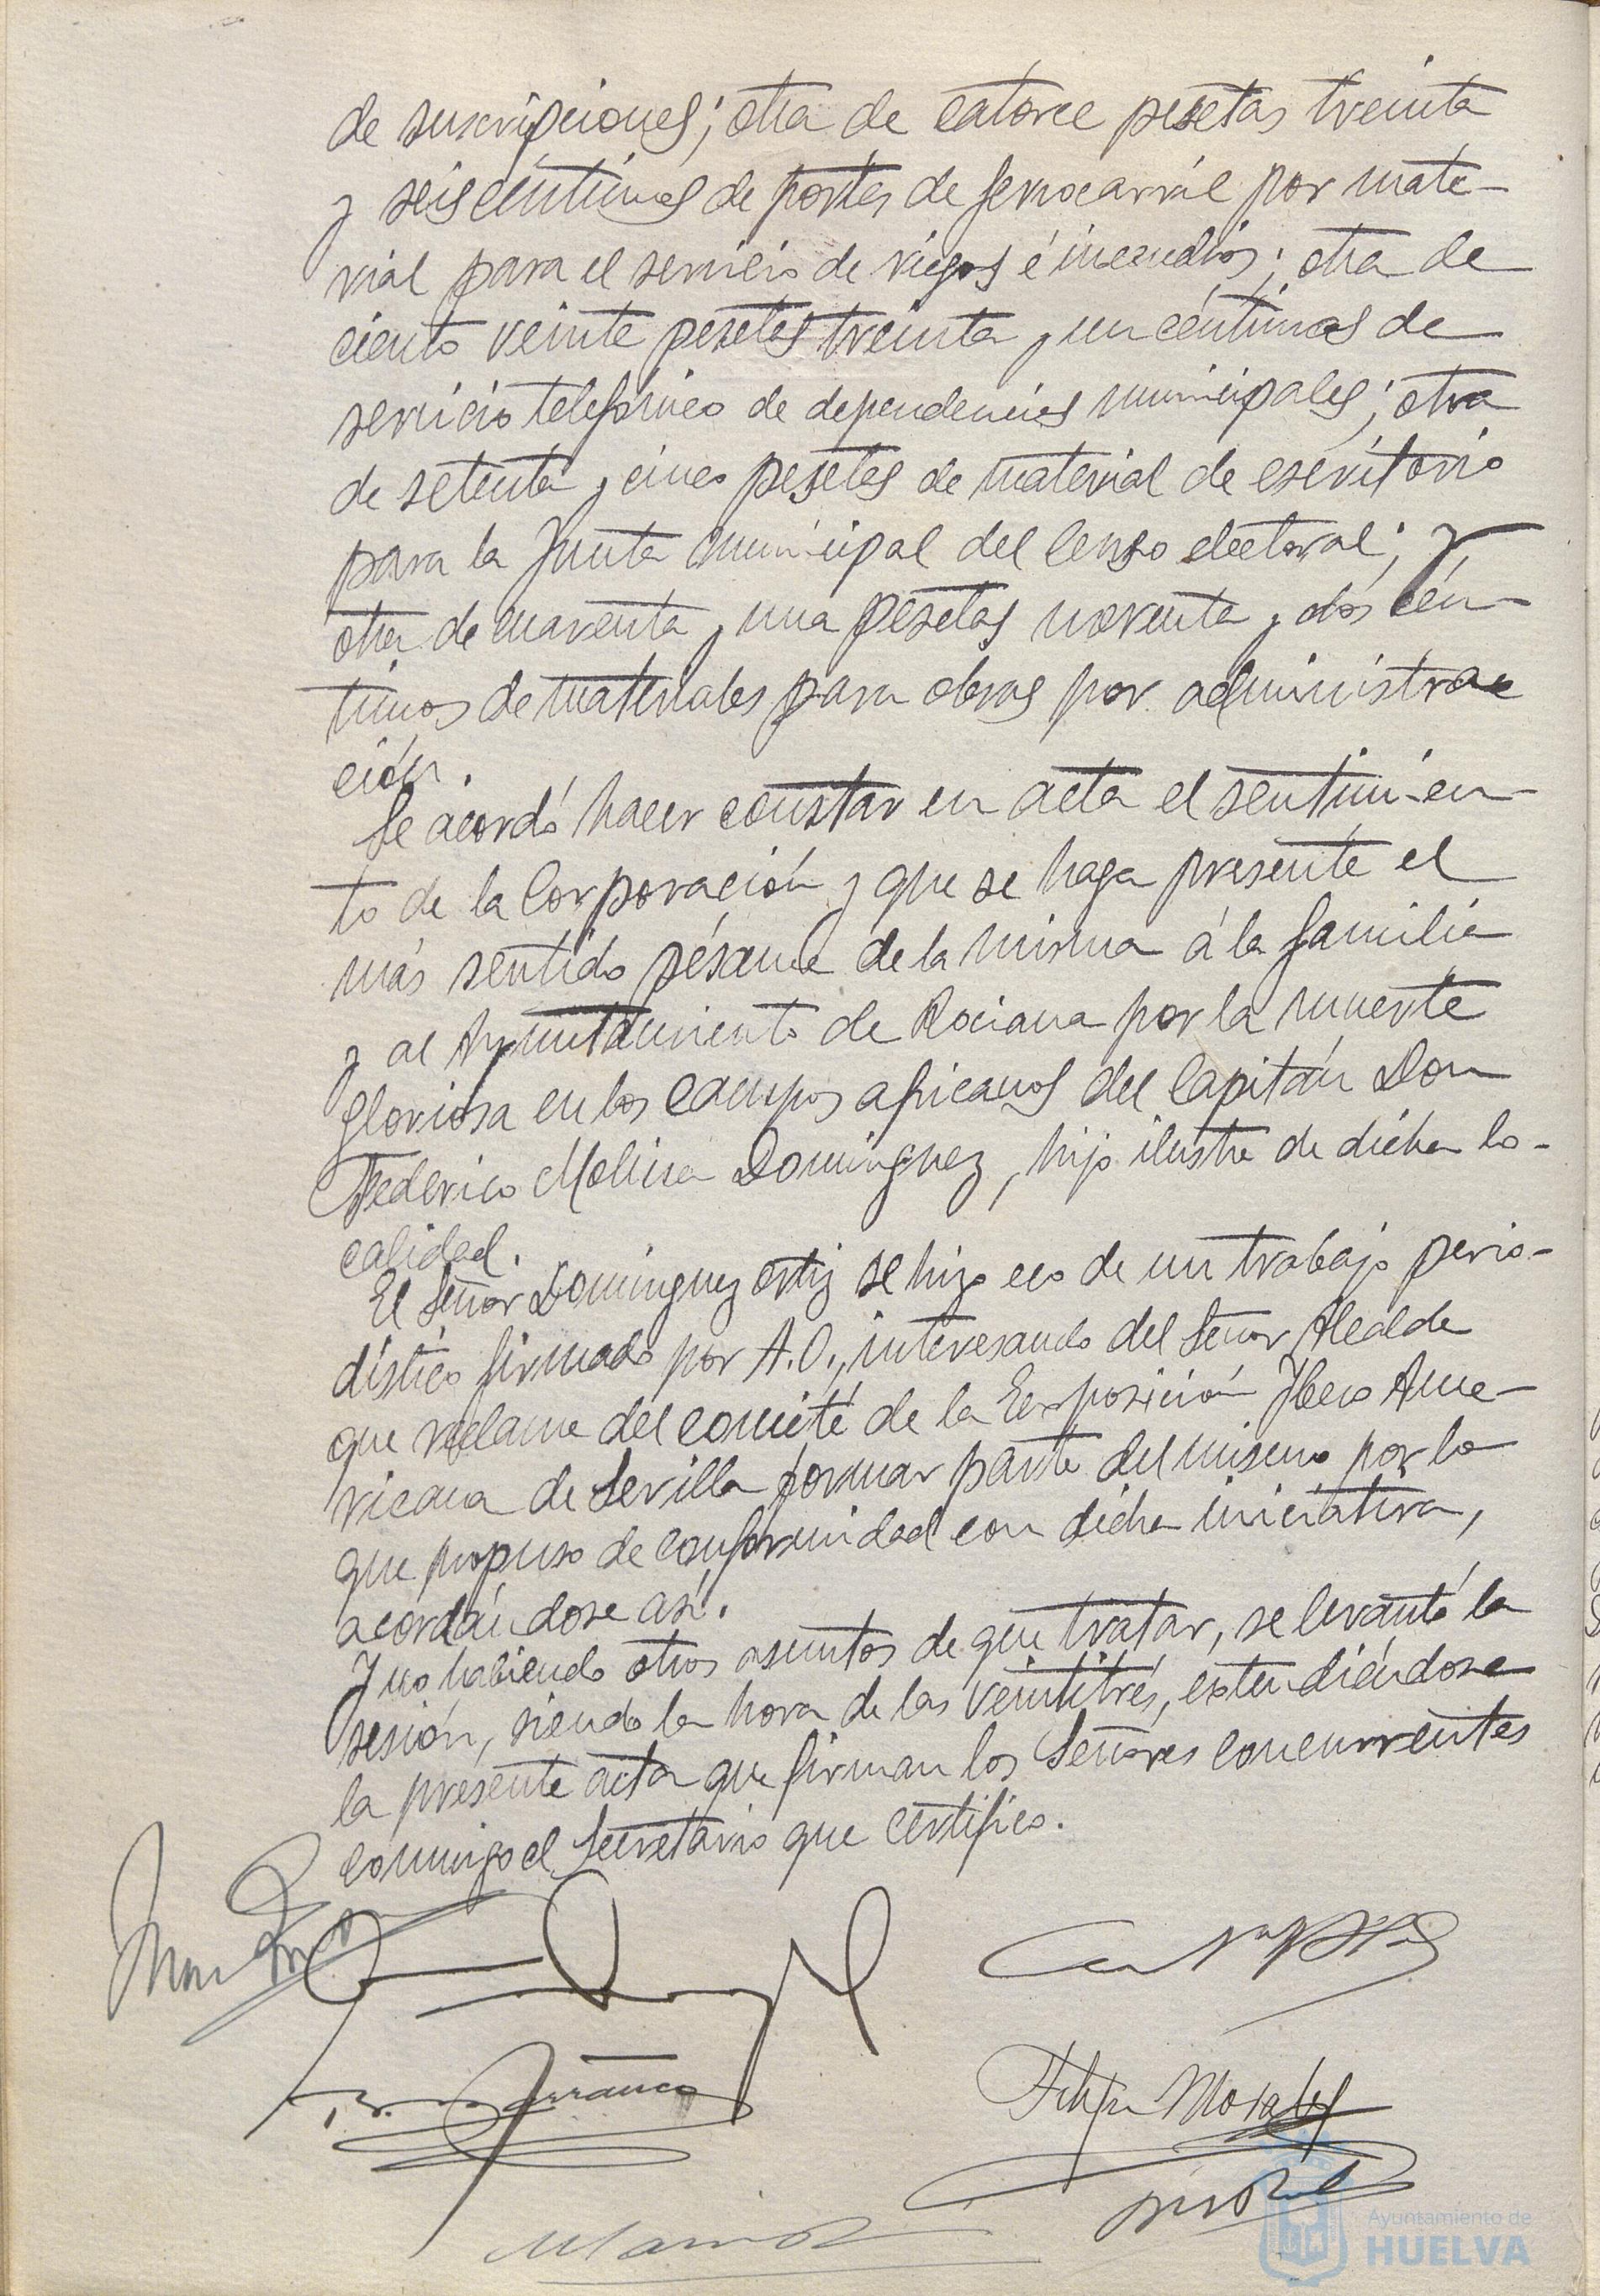 de suscripciones; otra de catorce pesetas treinta
y seis céntimos de portes de ferrocarril por mate-
rial para el servicio de riegos é incendios; otra de
ciento veinte pesetas treinta y un céntimos de
servicio telefónico de dependencias municipales; otra
de setenta y cinco pesetas de material de escritorio
para la Junta municipal del Censo electoral; y
otra de cuarenta y una pesetas noventa y dos cén-
timos de materiales para obras por administra-
ción.
Se acordó hacer constar en acta el sentimien-
to de la Corporación y que se haga presente el
más sentido pésame de la misma á la familia
y al Ayuntamiento de Rociana por la muerte
gloriosa en los campos africanos del Capitán Don
Federico Molina Dominguez, hijo ilustre de dicha lo-
calidad.
El Señor Dominguez Ortiz se hizo eco de un trabajo perio-
dístico firmado por A.O., interesando del Señor Alcalde
que reclame del comité de la Exposición Ibero Ame-
ricana de Sevilla formar parte del mismo por lo
que propuso de conformidad con dicha iniciativa,
acordándose así.
Y no habiendo otros asuntos de que tratar, se levantó la
sesión, siendo la hora de las veintitrés, extendiéndose
la presente acta que firman los Señores concurrentes
conmigo el Secretario que certifico.
Garranco
Felipe Morales
Ayuntamiento de
HUELVA